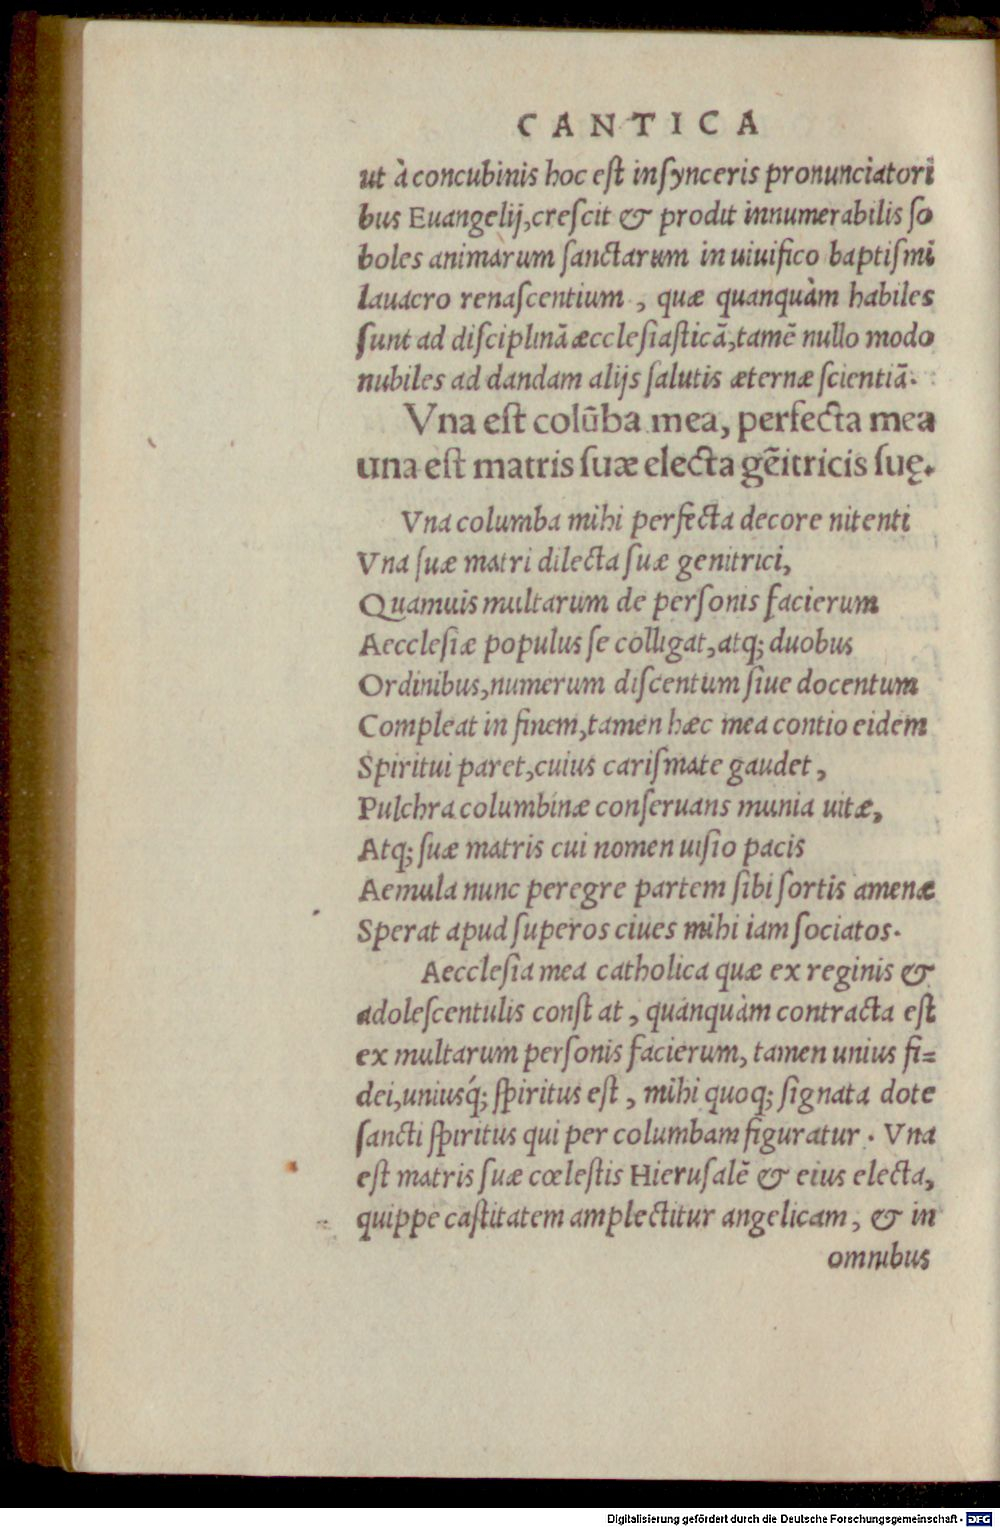 CANTICA
ut à concubinis hoc est insynceris pronunciatori
bus Euangelij, crescit & prodit innumerabilis so
boles animarum sanctarum in uiuifico baptismi
lauacro renascentium, quæ quanquàm habiles
sunt ad disciplinā æcclesiasticā, tamē nullo modo
nubiles ad dandam alijs salutis æternæ scientiā.
Vna est colūba mea, perfecta mea
una est matris suæ electa gēitricis suę.
Vna columba mihi perfecta decore nitenti
Vna suæ matri dilecta suæ genitrici,
Quamuis multarum de personis facierum
Aecclesiæ populus se colligat, atq; duobus
Ordinibus, numerum discentum siue docentum
Compleat in finem, tamen hæc mea contio eidem
Spiritui paret, cuius carismate gaudet,
Pulchra columbinæ conseruans munia uitæ,
Atq; suæ matris cui nomen uisio pacis
Aemula nunc peregre partem sibi sortis amenæ
Sperat apud superos ciues mihi iam sociatos.
Aecclesia mea catholica quæ ex reginis &
adolescentulis constat, quanquàm contracta est
ex multarum personis facierum, tamen unius fi=
dei, uniusq́; spiritus est, mihi quoq; signata dote
sancti spiritus qui per columbam figuratur. Vna
est matris suæ cœlestis Hierusalē & eius electa,
quippe castitatem amplectitur angelicam, & in
omnibus
Digitalisierung gefördert durch die Deutsche Forschungsgemeinschaft - DFG